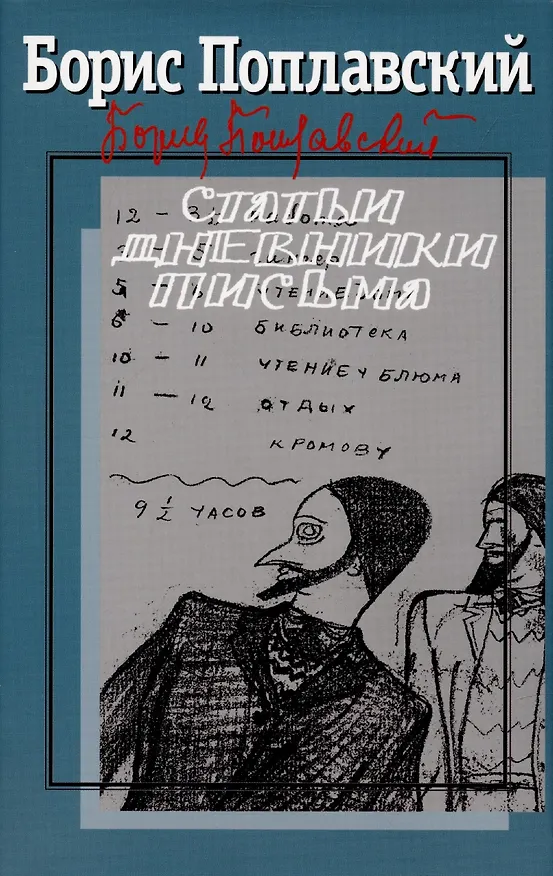 Борис Поплавский
Борис Поплавский
СТАТЬИ
ДНЕВНИКИ
ПИСЬМА
12 —
5 — ЧТЕНИЕ
6 — 10 БИБЛИОТЕКА
10 — 11 ЧТЕНИЕ У БЛЮМА
11 — 12 ОТДЫХ
12 К РОМОВУ
9 ½ ЧАСОВ